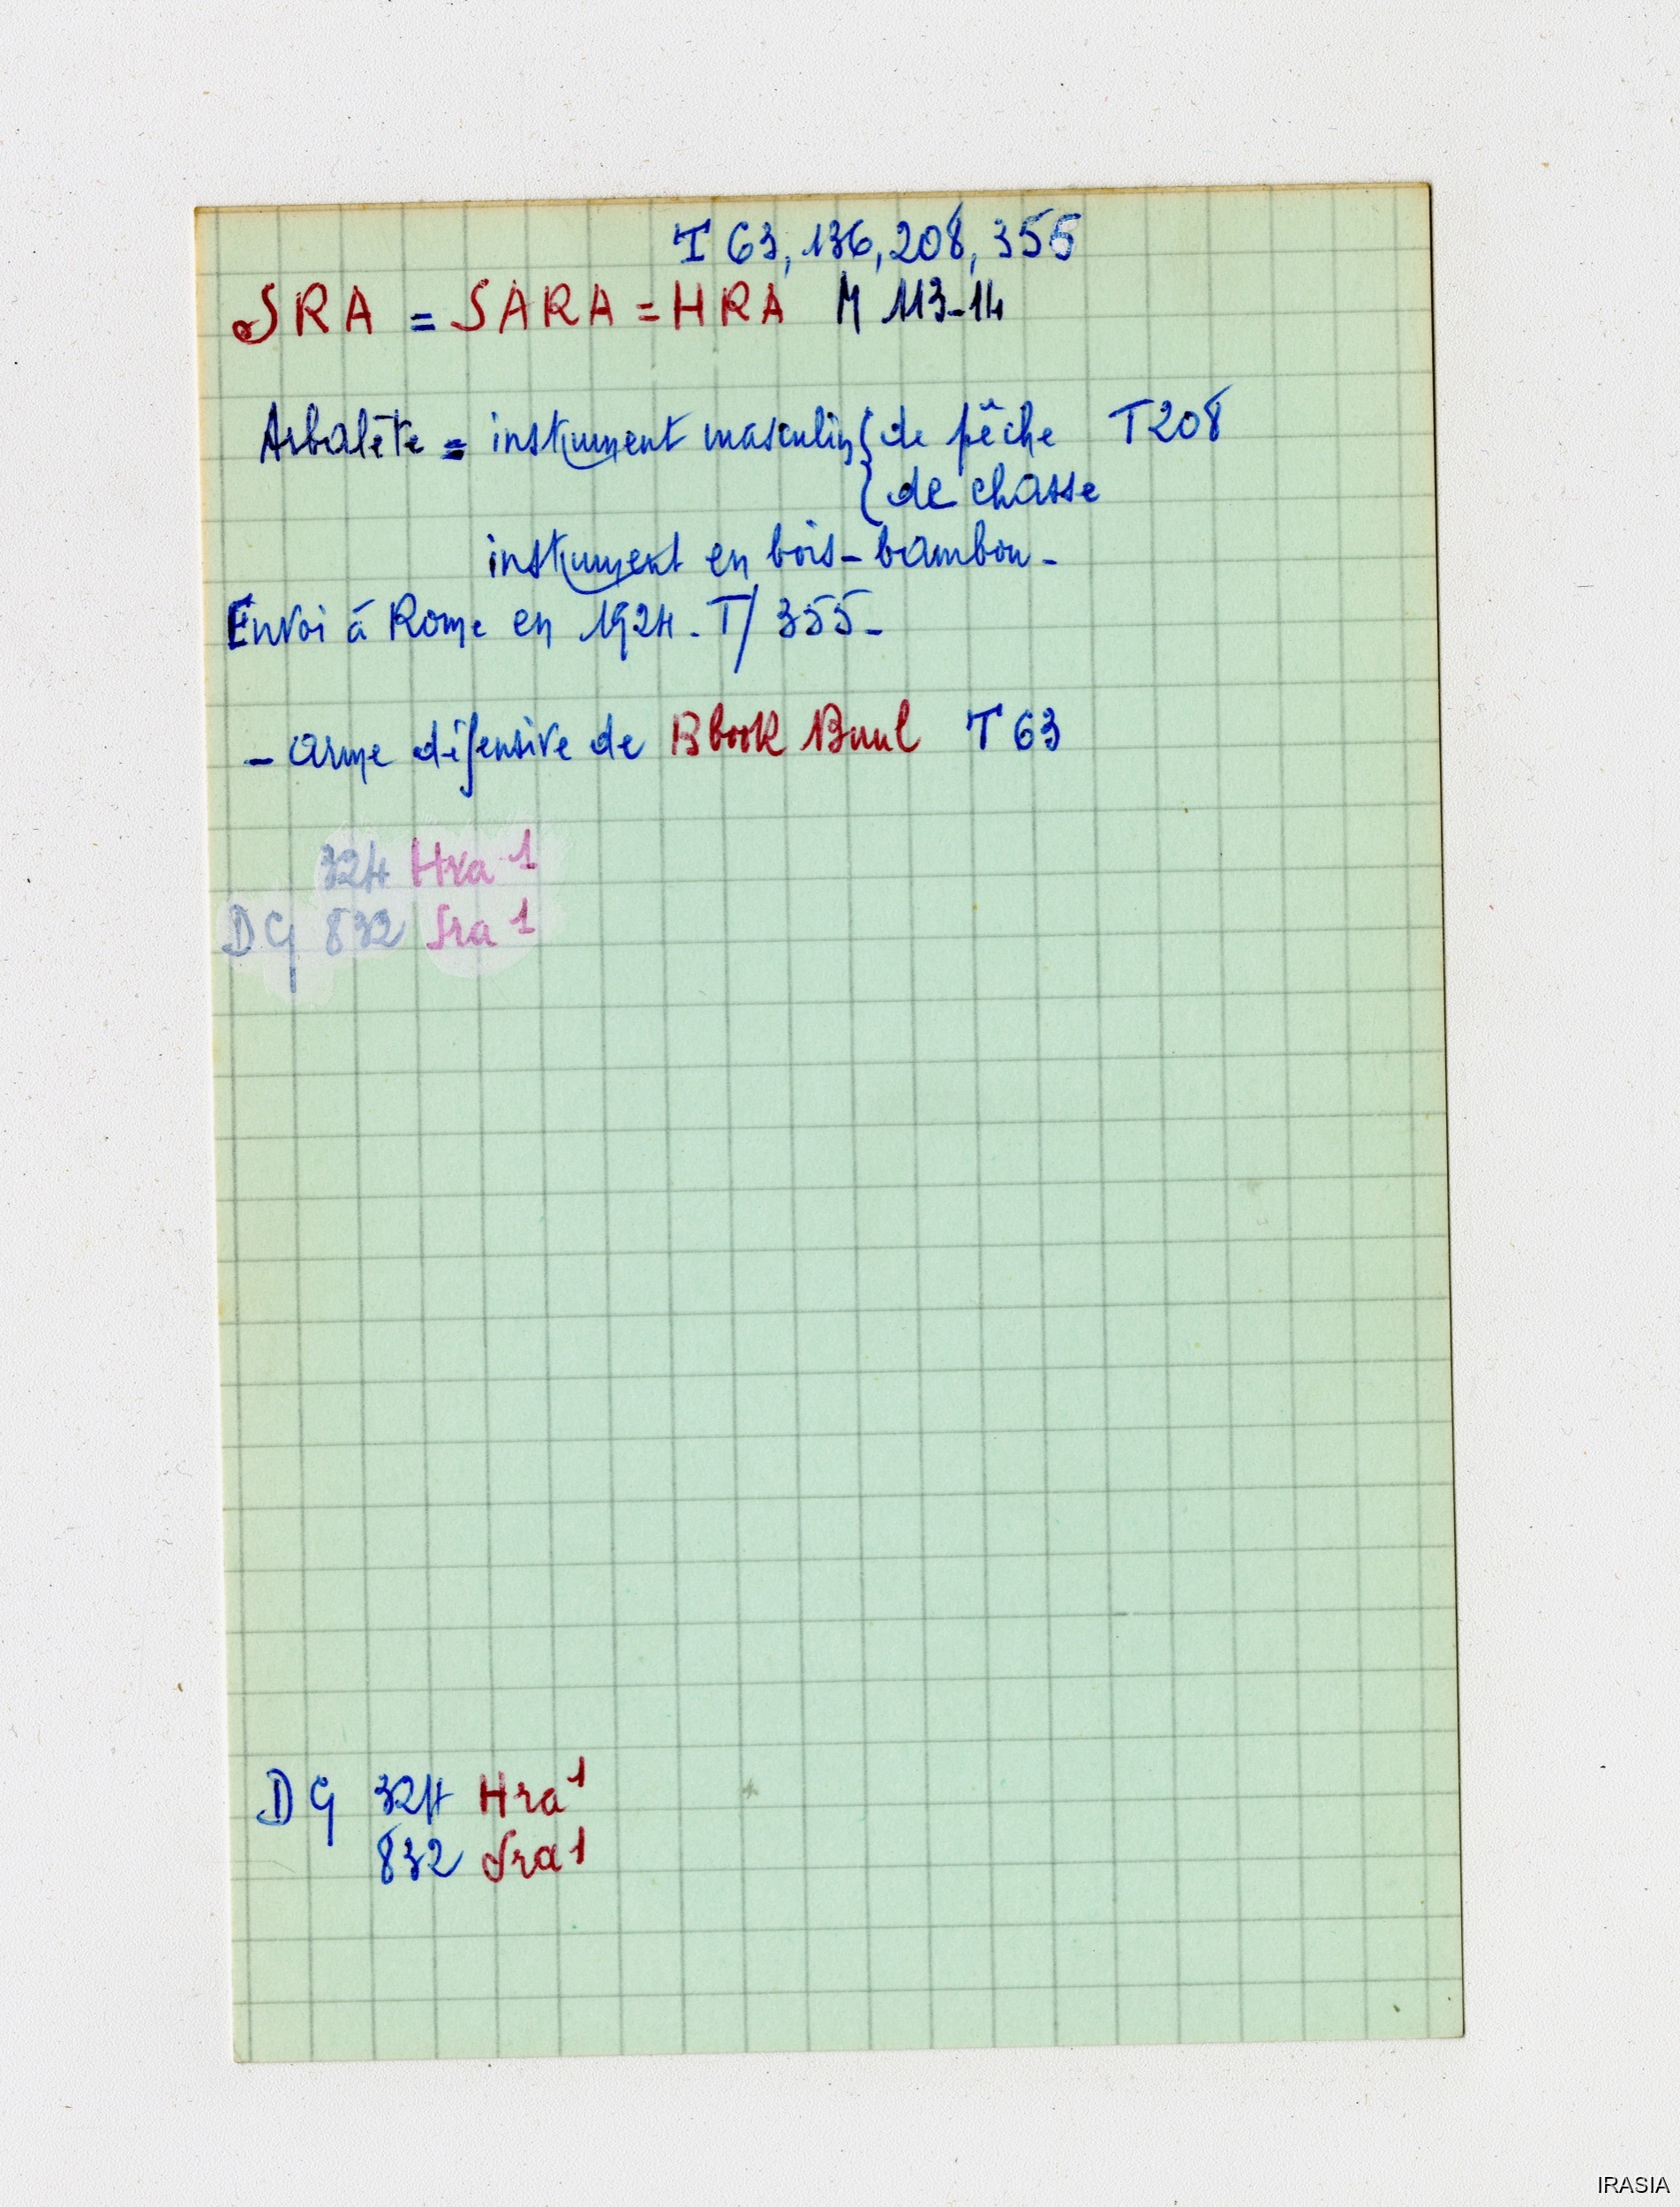 T 63, 136, 208, 355
SRA = SARA = HRA M 113-14
Arbalète = instrument masculin { de pêche T208
{ de chasse
instrument en bois - bambou -
Envoi à Rome en 1924. T/ 355 -
- arme défensive de Bbook Buul T 63
324 Hra 1
DG 832 Sra 1
DG 324 Hra 1
832 Sra 1
IRASIA